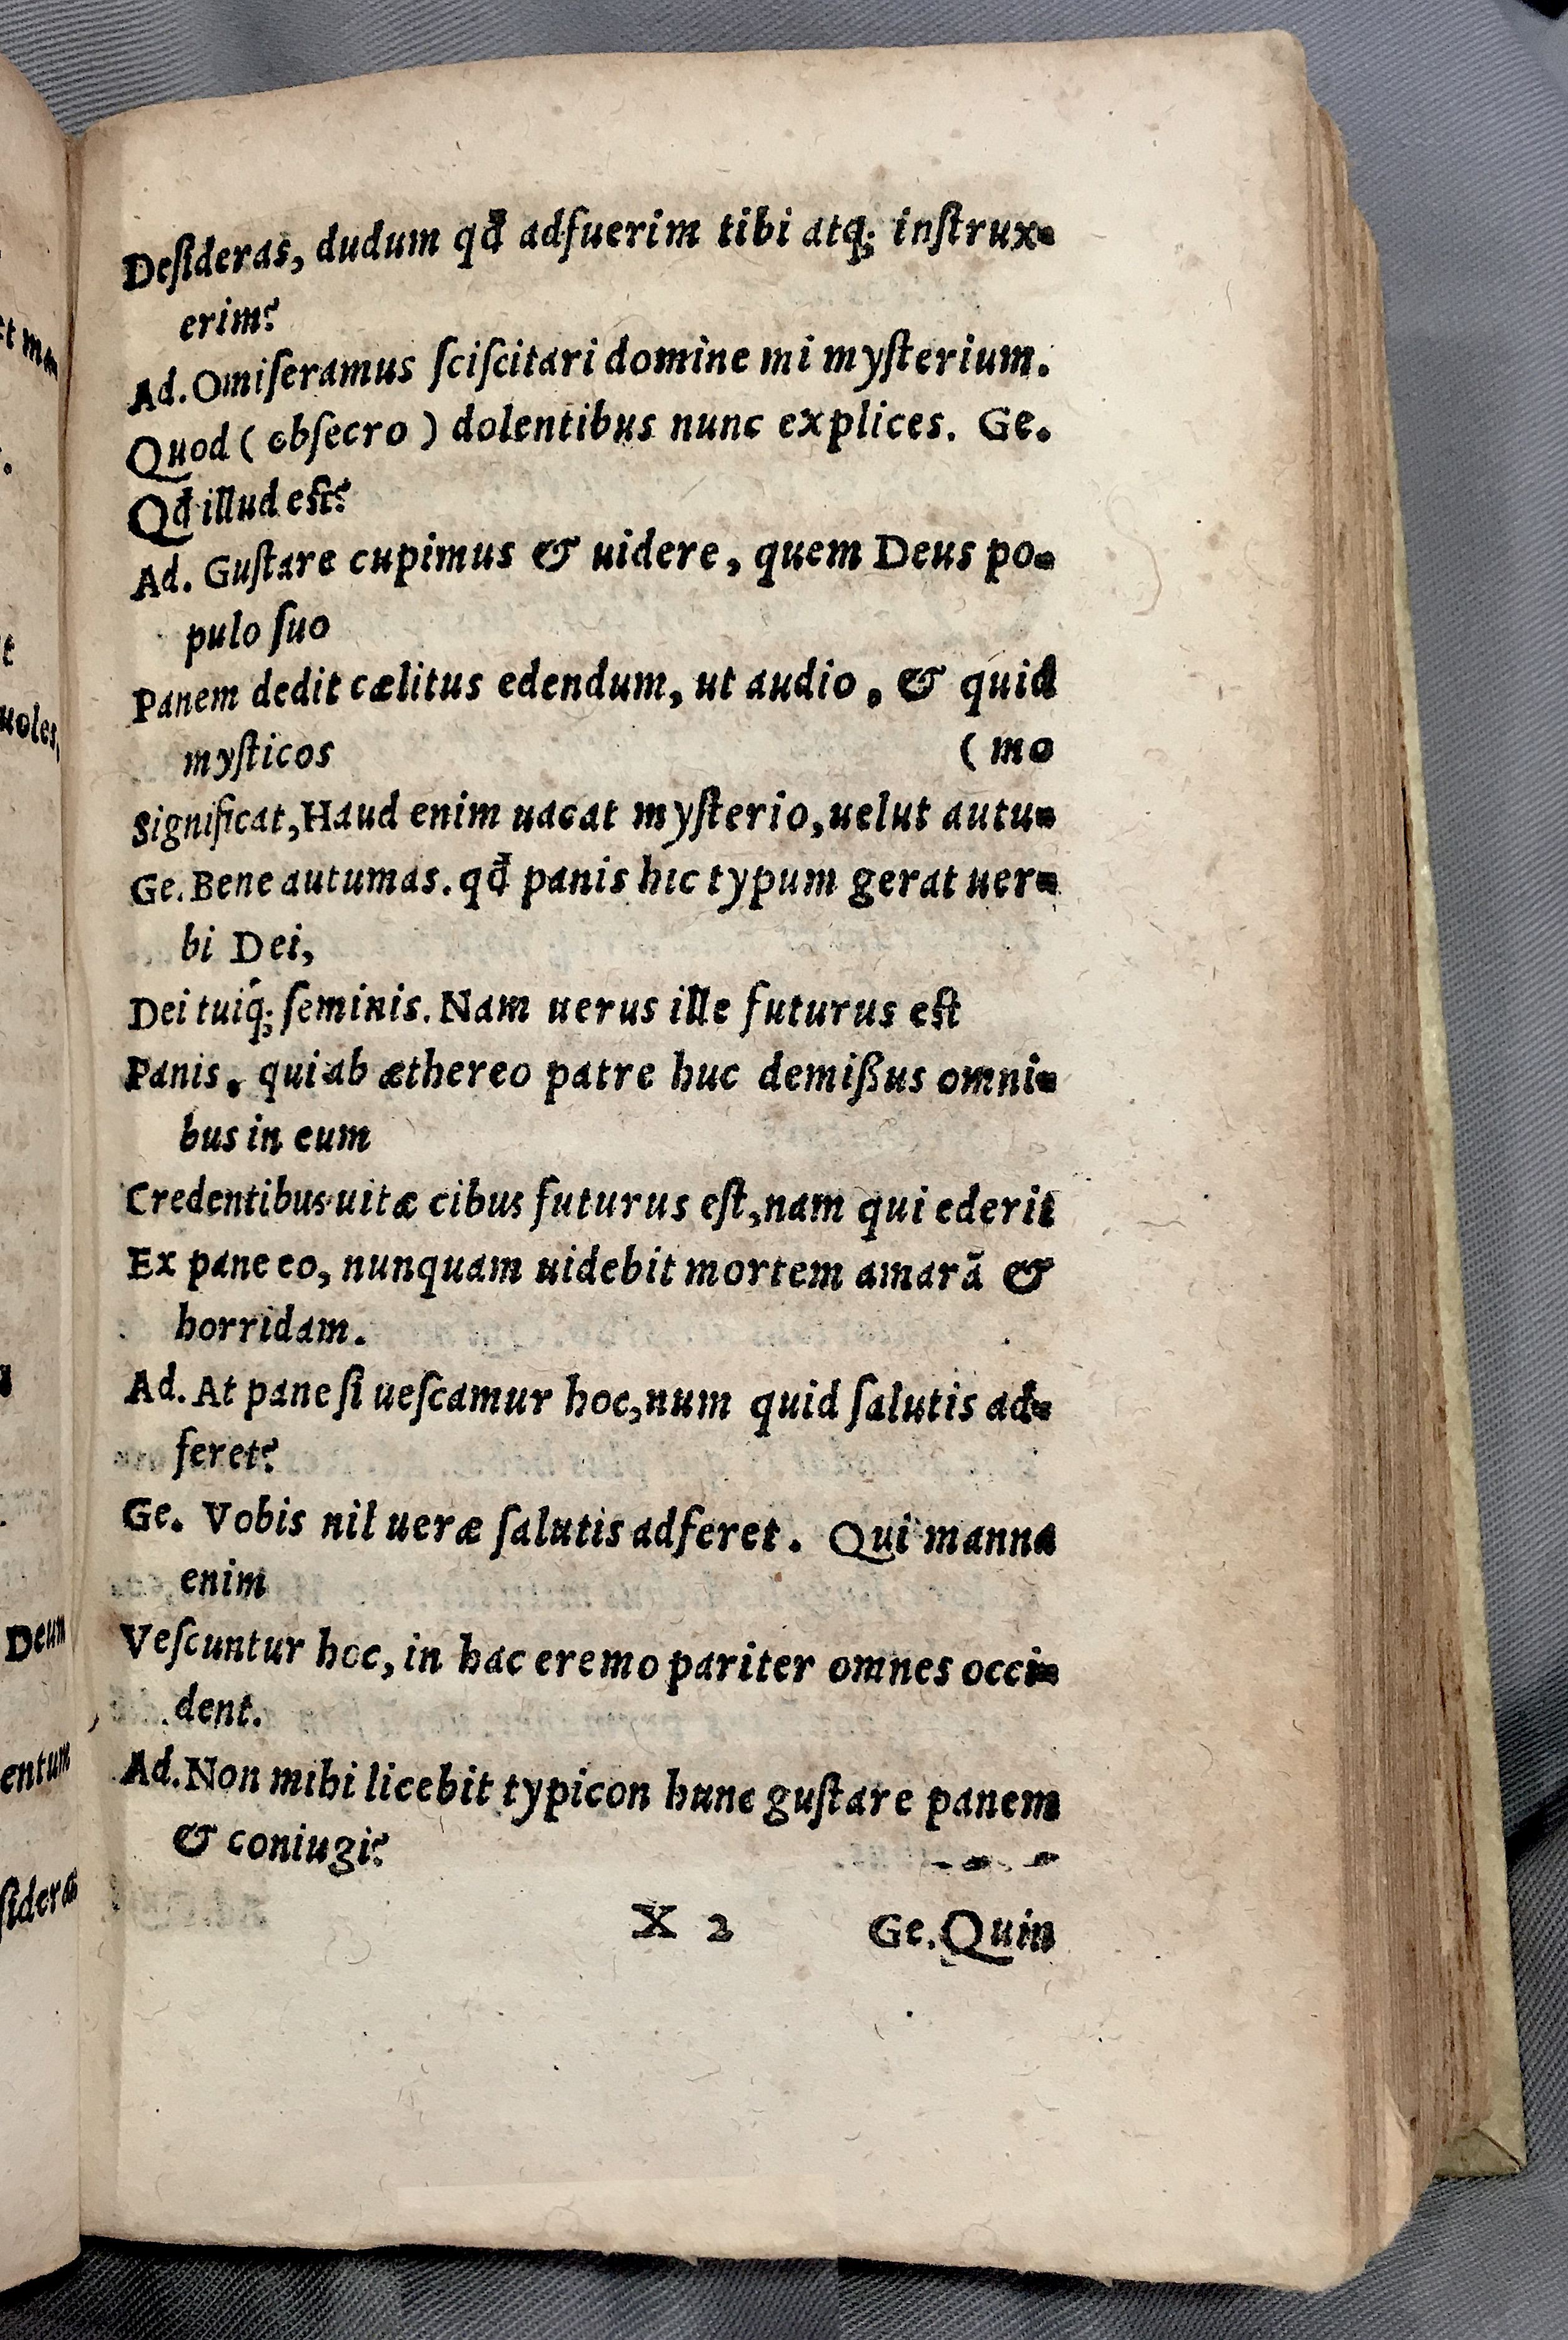 Deſideras, dudum qđ adfuerim tibi atq; inſtrux-
erim?
Ad. Omiſeramus ſciſcitari domine mi myſterium.
Quod ( obſecro ) dolentibus nunc explices. Ge.
Qđ illud eſt?
Ad. Guſtare cupimus & uidere, quem Deus po-
pulo ſuo
Panem dedit cælitus edendum, ut audio, & quid
myſticos (mo
Significat, Haud enim uacat myſterio, uelut autu-
Ge. Bene autumas. qđ panis hic typum gerat uer-
bi Dei,
Dei tuiq́; ſeminis. Nam uerus ille futurus eſt
Panis, qui ab æthereo patre huc demiſſus omni-
bus in eum
Credentibus uitæ cibus futurus eſt, nam qui ederit
Ex pane eo, nunquam uidebit mortem amarã &
horridam.
Ad. At pane ſi ueſcamur hoc, num quid ſalutis ad-
feret?
Ge. Vobis nil ueræ ſalutis adferet. Qui manna
enim
Veſcuntur hoc, in hac eremo pariter omnes occi-
dent.
Ad. Non mihi licebit typicon hunc guſtare panem
& coniugi?
X 2 Ge. Quin